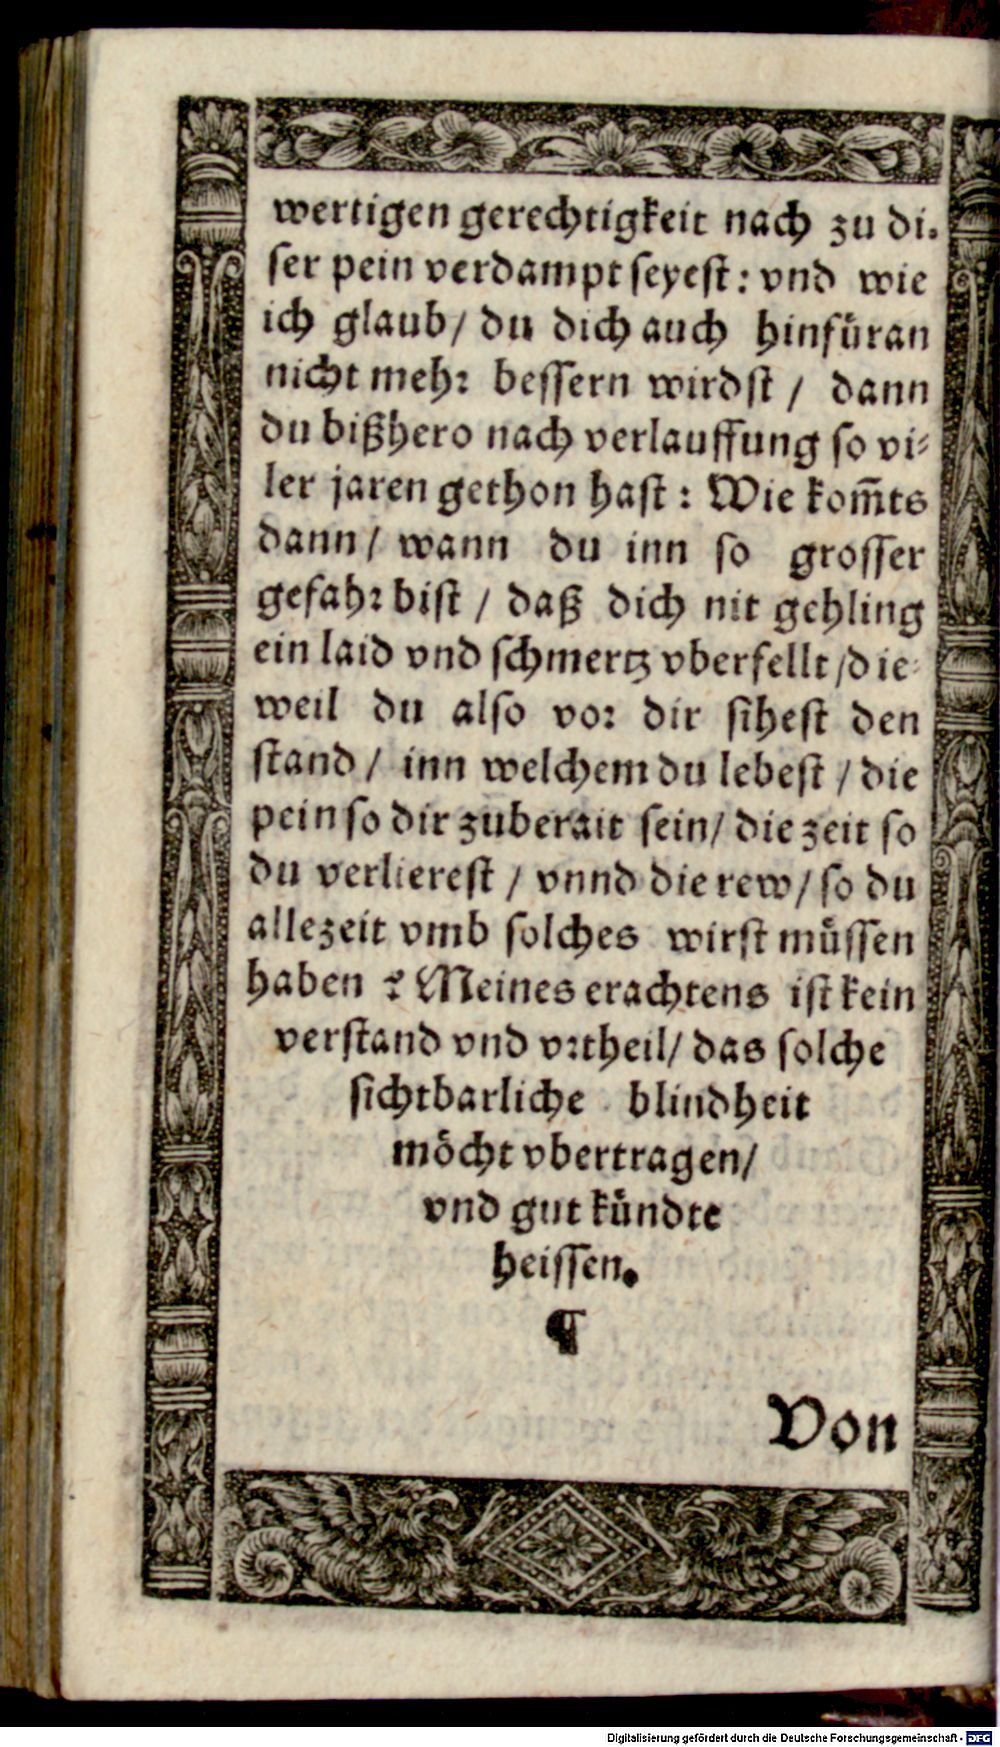 wertigen gerechtigkeit nach zu di⸗
ser pein verdampt seyest: vnd wie
ich glaub/ du dich auch hinfüran
nicht mehr bessern wirdst / dann
du bißhero nach verlauffung so vi⸗
ler jaren gethon hast: Wie kom̃ts
dann/ wann du inn so grosser
gefahr bist / daß dich nit gehling
ein laid vnd schmertz vberfellt/die⸗
weil du also vor dir sihest den
stand/ inn welchem du lebest / die
pein so dir zuberait sein/ die zeit so
du verlierest / vnnd die rew/ so du
allezeit vmb solches wirst müssen
haben ? Meines erachtens ist kein
verstand vnd vrtheil/ das solche
sichtbarliche blindheit
möcht vbertragen/
vnd gut kündte
heissen.
¶
Von
Digitalisierung gefördert durch die Deutsche Forschungsgemeinschaft - DFG